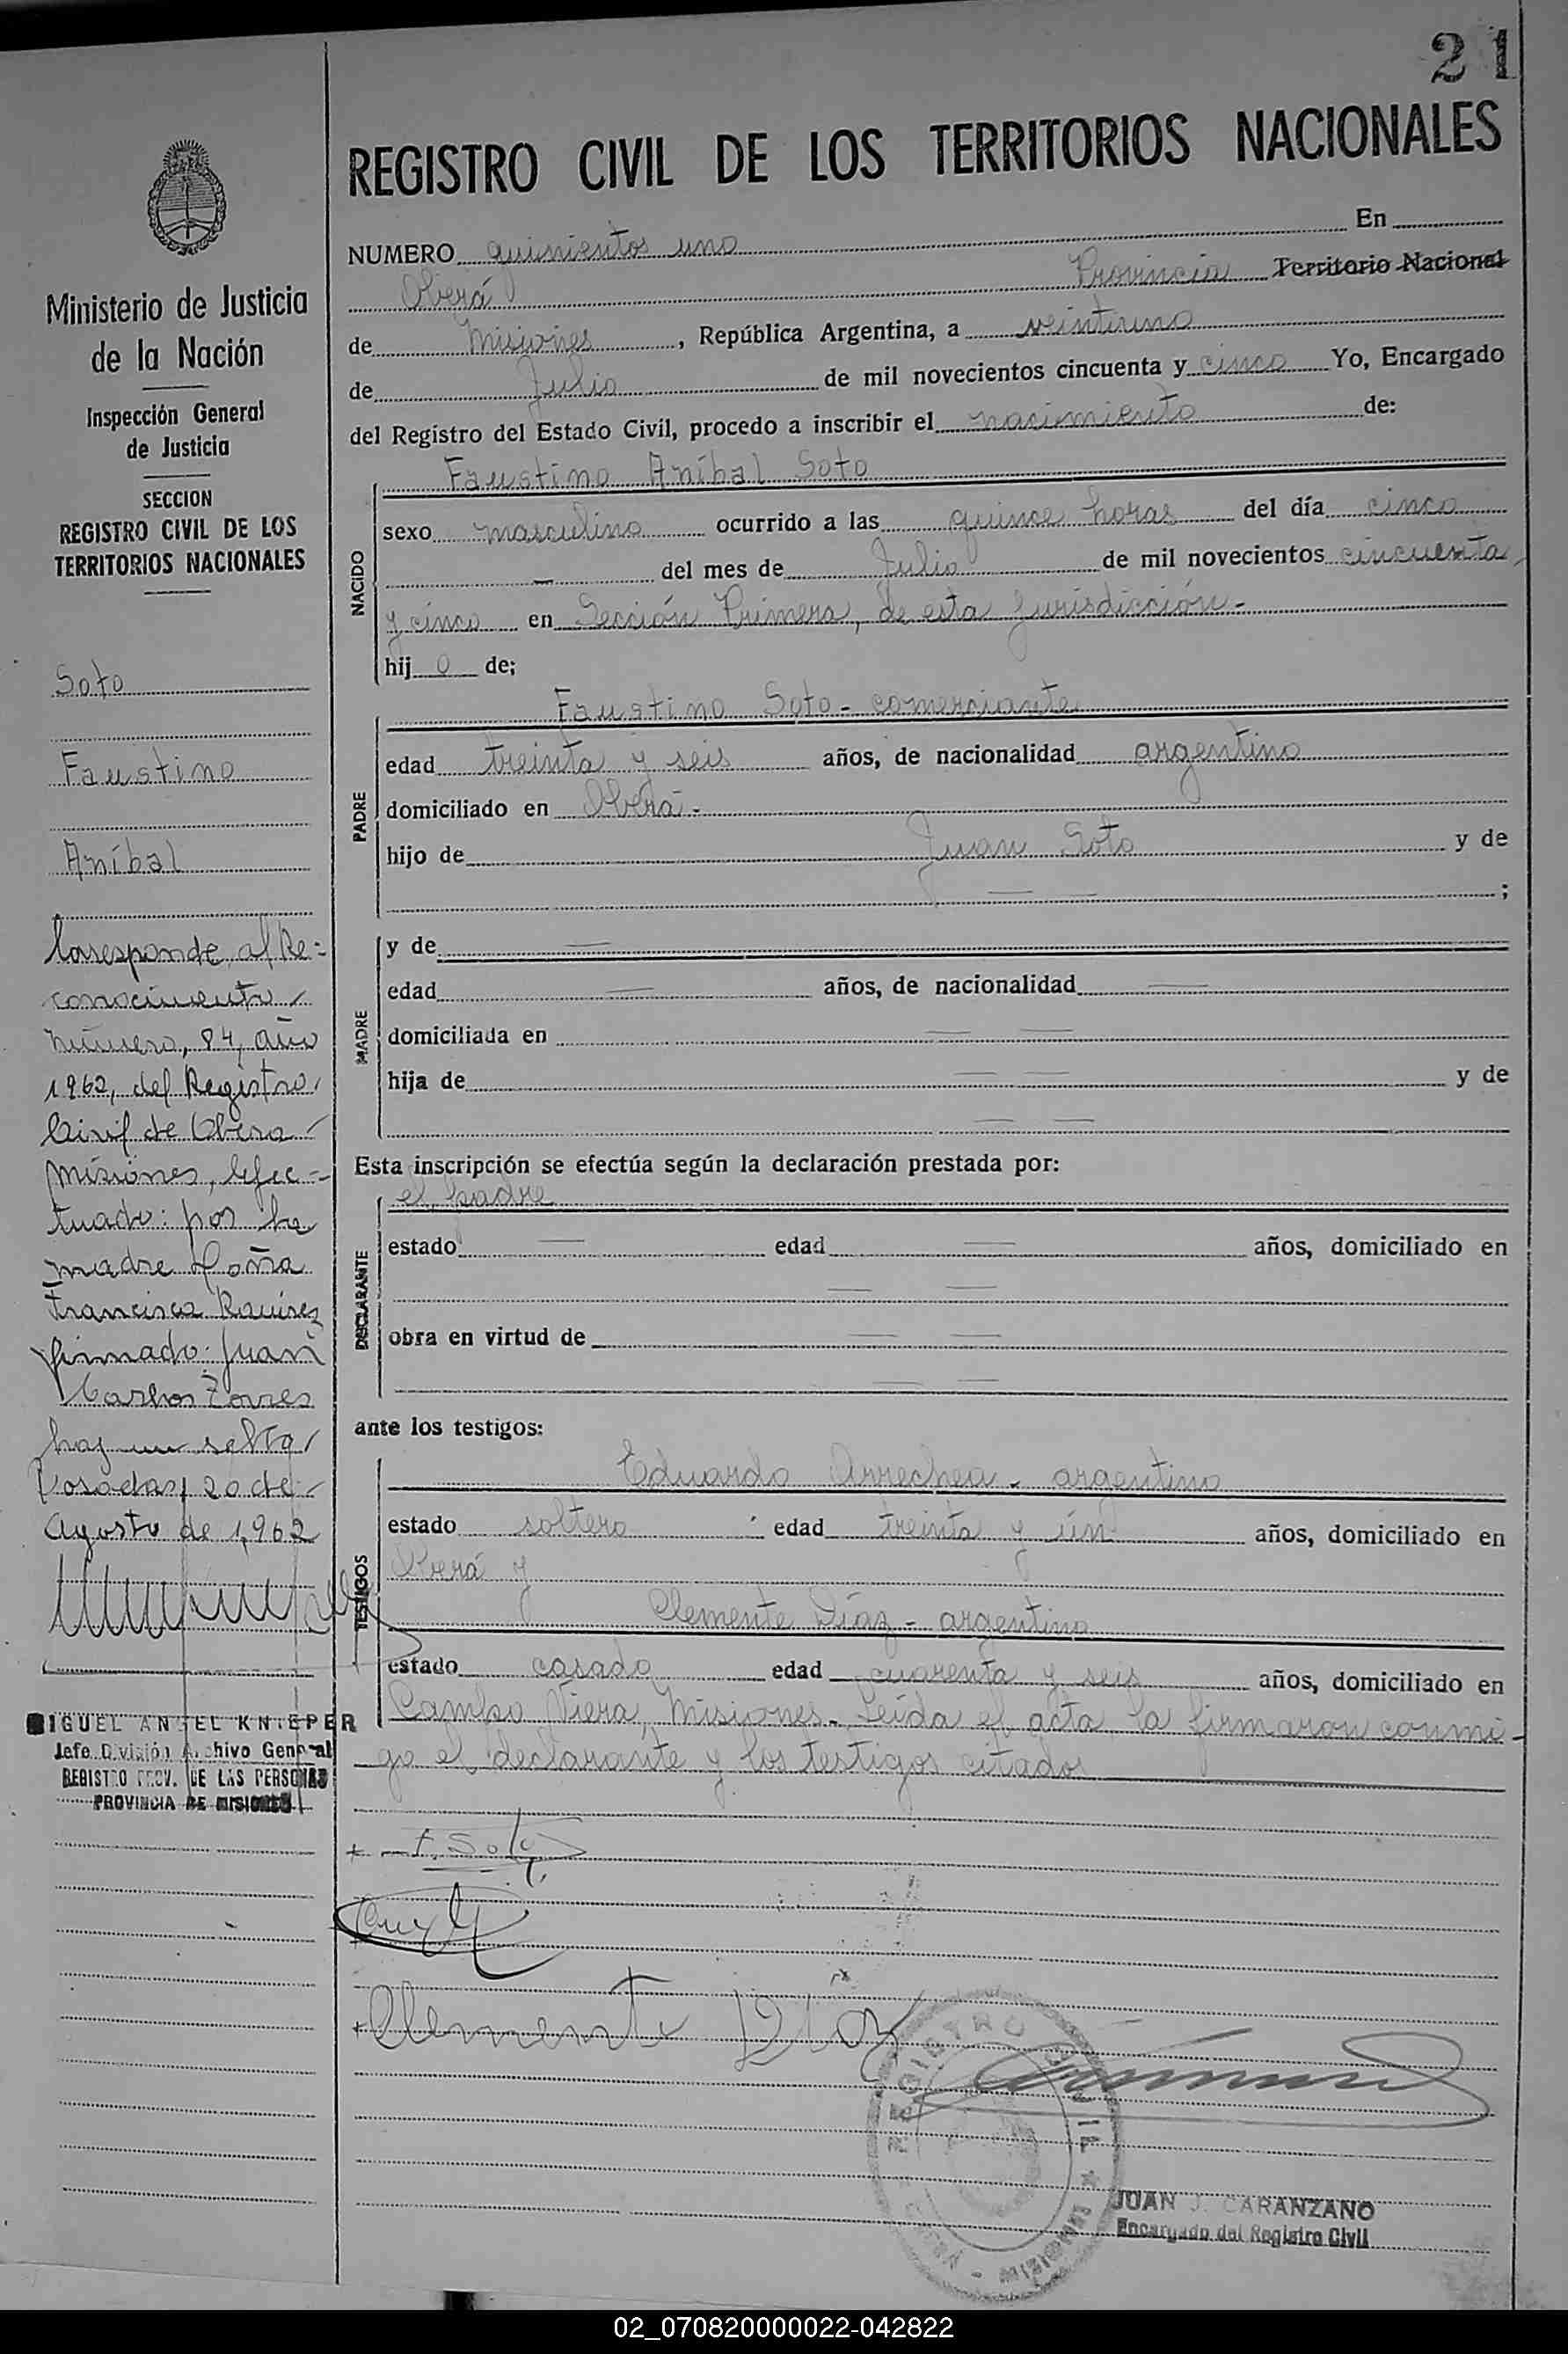 21
REGISTRO CIVIL DE LOS TERRITORIOS NACIONALES
NUMERO quinientos uno En
Oberá Provincia Territorio Nacional
de Misiones, República Argentina, a veintiuno
de Julio de mil novecientos cincuenta y cinco Yo, Encargado
del Registro del Estado Civil, procedo a inscribir el nacimiento de:
NACIDO
Faustino Aníbal Soto
sexo masculino ocurrido a las quince horas del día cinco
— del mes de Julio de mil novecientos cincuenta
y cinco en Sección Primera, de esta Jurisdicción-
hij o de;
PADRE
Faustino Soto - comerciante
edad treinta y seis años, de nacionalidad argentino
domiciliado en Oberá-
hijo de Juan Soto y de
— — ;
MADRE
y de —
edad — años, de nacionalidad —
domiciliada en — —
hija de — — y de
— —
Esta inscripción se efectúa según la declaración prestada por:
DECLARANTE
el padre
estado — edad — años, domiciliado en
— —
obra en virtud de — —
— —
ante los testigos:
TESTIGOS
Eduardo Arrechea - argentino
estado soltero edad treinta y ún años, domiciliado en
Oberá y
Clemente Díaz - argentino
estado casado edad cuarenta y seis años, domiciliado en
Campo Viera, Misiones- Leída el acta la firmaron conmi-
go el declarante y los testigos citados
F. Soto
Clemente Díaz
REGISTRO CIVIL
OBERA - MISIONES
JUAN J. CARANZANO
Encargado del Registro Civil
Ministerio de Justicia
de la Nación
Inspección General
de Justicia
SECCION
REGISTRO CIVIL DE LOS
TERRITORIOS NACIONALES
Soto
Faustino
Aníbal
Corresponde al Re-
conocimiento
número, 84, año
1962, del Registro
Civil de Obera
Misiones, efec-
tuado: por la
madre Doña
Francisca Ramirez
firmado: Juan
Carlos Torres
hay un sello
Posadas, 20 de
Agosto de 1,962
MIGUEL ANGEL KNIEPER
Jefe División Archivo General
REGISTRO PROV. DE LAS PERSONAS
PROVINCIA DE MISIONES
02_070820000022-042822